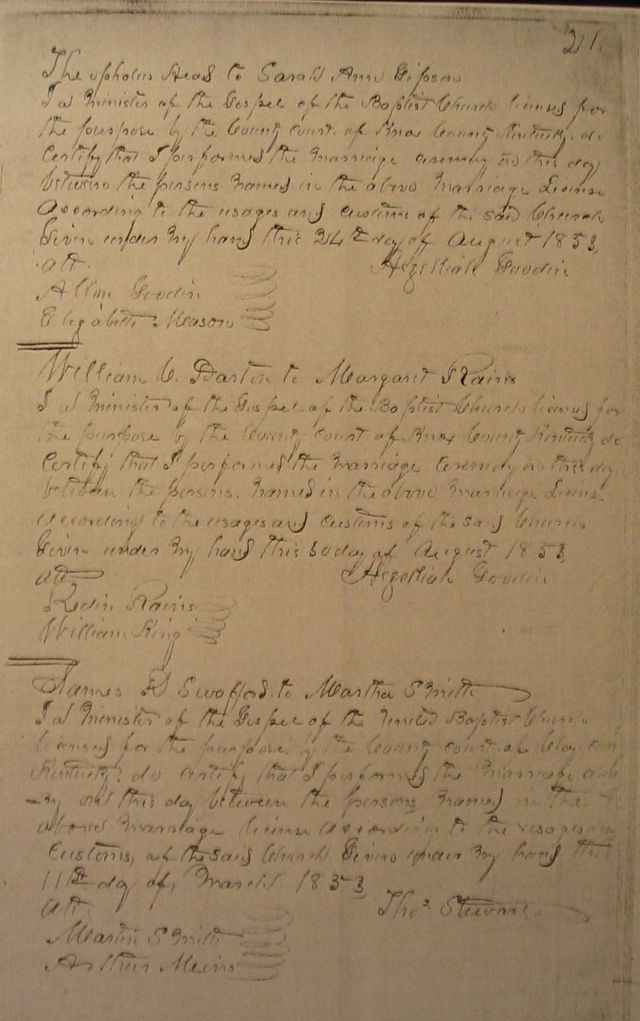 211
Theopholus Head to Sarah Ann Gipson
I a Minister of the Gospel of the Baptist Church licensed for
the purpose by the County Court of Knox County Kentucky do
Certify that I performed the Marriage ceremony on this day
between the persons Named in the above Marriage License
According to the usages and customs of the said Church
Given under My hand this 24th day of August 1853
Att. Hezekiah Goodin
Allen Goodin
Elizabeth Mason
William C. Barton to Margaret Rains
I a Minister of the Gospel of the Baptist Church licensed for
the purpose by the County Court of Knox County Kentucky do
Certify that I performed the Marriage Ceremony on this day
between the persons Named in the above Marriage License
According to the usages and Customs of the said Church
Given under My hand this 30 day of August 1853
Att Hezekiah Goodin
Rains
William King
James Swofford to Martha Smith
I a Minister of the Gospel of the United Baptist Church
licensed for the purpose by the County Court of Clay
Kentucky do certify that I performed the Marriage
on this day between the persons Named in the
above Marriage license According to the usages
Customs of the said Church Given under My hand this
11th day of March 1853
Att. Thos. Stewart
Martin Smith
Arthur